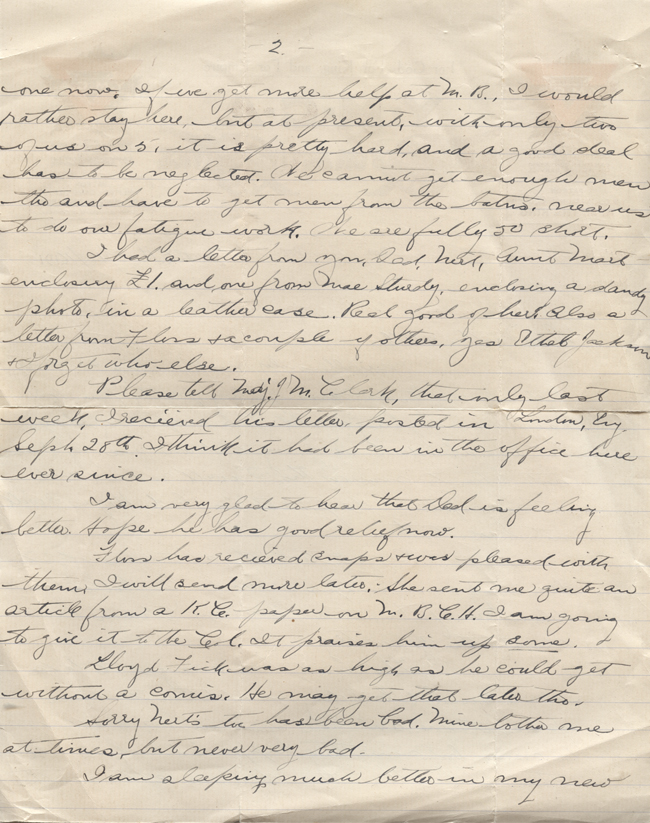 2. -
one now. If we get more help at M. B., I would
rather stay here, but at present, with only two
of us on 5, it is pretty hard, and a good deal
has to be neglected. We cannot get enough men
tho and have to get men from the batns. near us
to do our fatigue work. We are fully 50 short.
I had a letter from you, Dad, Nert, Aunt Mart
enclosing £1. and one from Mae Sturdy, enclosing a dandy
photo, in a leather case. Real good of her. Also a
letter from Floss & a couple of others, yes Ethel Jackson
& forget who else.
Please tell Maj. J. M. Clark, that only last
week, I recieved his letter posted in London, Eng
Sept 28th. I think it had been in the office here
ever since.
I am very glad to hear that Dad is feeling
better. Hope he has good relief now.
Floss has recieved snaps & was pleased with
them, I will send more later. She sent me quite an
article from a K. C. paper on M. B. C. H. I am going
to give it to the Col. It praises him up some.
Lloyd Fick was as high as he could get
without a comis. He may get that later tho.
Sorry Nert's toe has been bad. Mine bother me
at times, but never very bad.
I am sleeping much better in my new